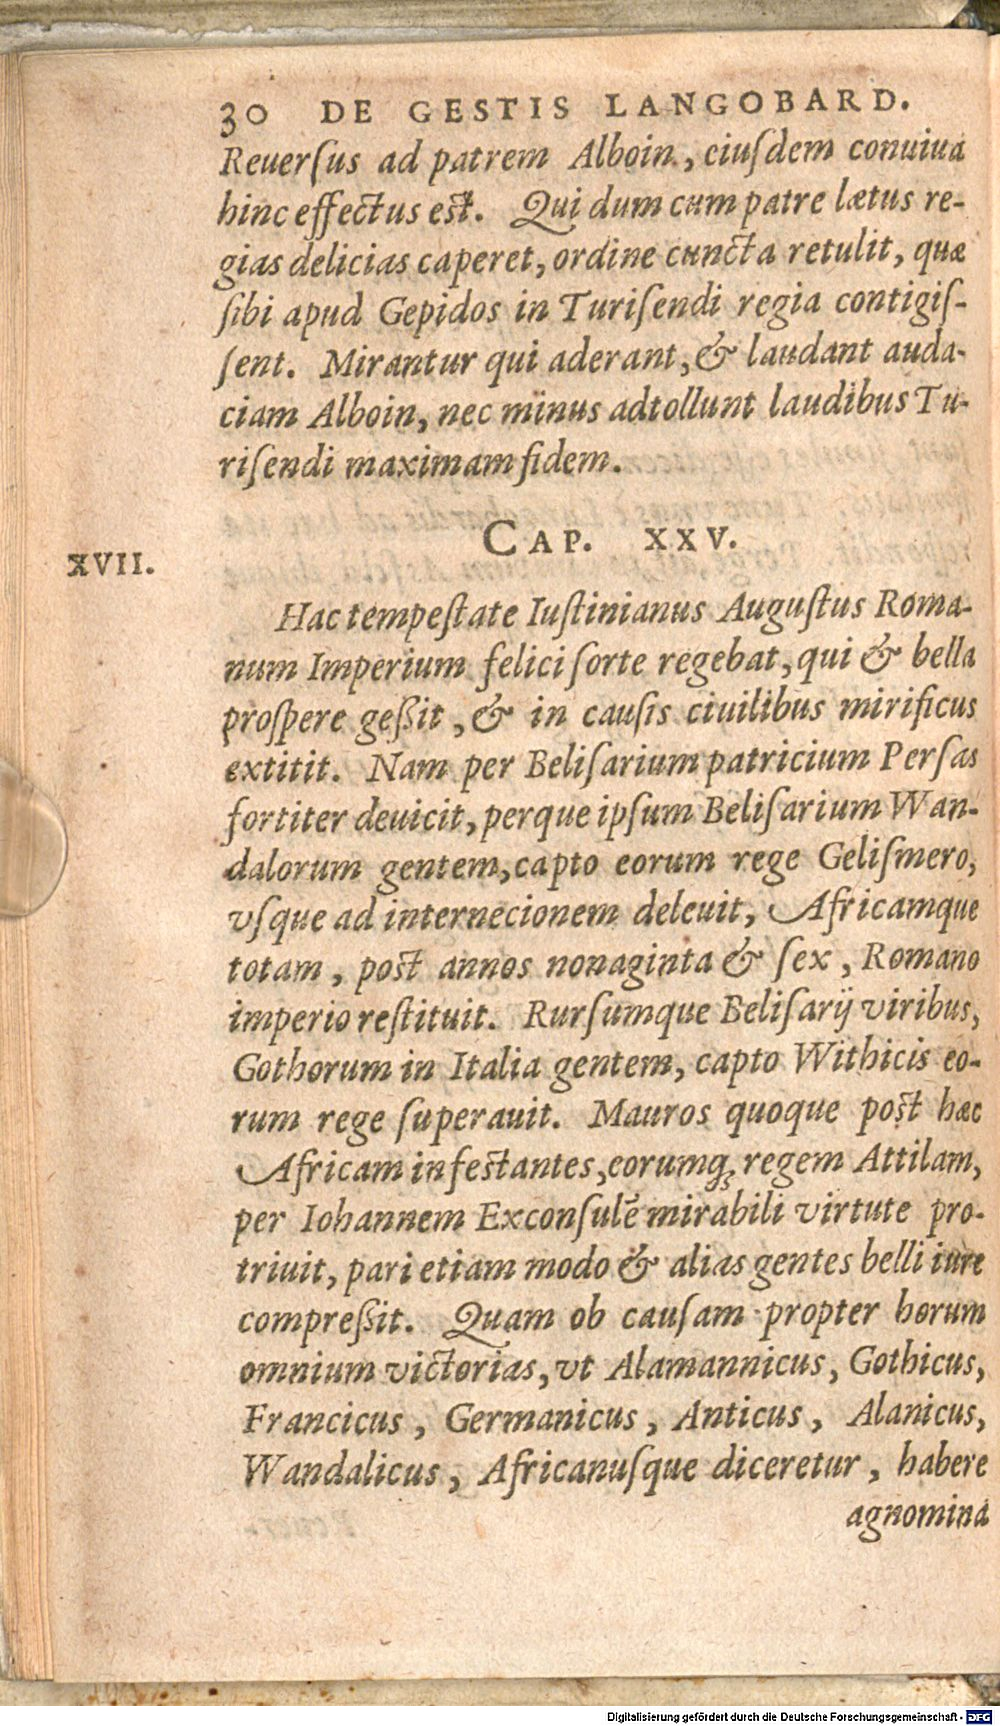 30 DE GESTIS LANGOBARD.
Reuerſus ad patrem Alboin, eiuſdem conuiua
hinc effectus est. Qui dum cum patre lætus re-
gias delicias caperet, ordine cuncta retulit, quæ
ſibi apud Gepidos in Turiſendi regia contigiſ-
ſent. Mirantur qui aderant, & laudant auda-
ciam Alboin, nec minus adtollunt laudibus Tu-
riſendi maximam fidem.
CAP. XXV.
XVII.
Hac tempeſtate Iuſtinianus Auguſtus Roma-
num Imperium felici ſorte regebat, qui & bella
proſpere geßit, & in cauſis ciuilibus mirificus
extitit. Nam per Beliſarium patricium Perſas
fortiter deuicit, perque ipſum Beliſarium Wan-
dalorum gentem, capto eorum rege Geliſmero,
vſque ad internecionem deleuit, Africamque
totam, post annos nonaginta & ſex, Romano
imperio reſtituit. Rurſumque Beliſarij viribus,
Gothorum in Italia gentem, capto Withicis eo-
rum rege ſuperauit. Mauros quoque post hæc
Africam infestantes, eorumq; regem Attilam,
per Iohannem Exconſulē mirabili virtute pro-
triuit, pari etiam modo & alias gentes belli iure
compreßit. Quam ob cauſam propter horum
omnium victorias, vt Alamannicus, Gothicus,
Francicus, Germanicus, Anticus, Alanicus,
Wandalicus, Africanuſque diceretur, habere
agnomina
Digitalisierung gefördert durch die Deutsche Forschungsgemeinschaft - DFG